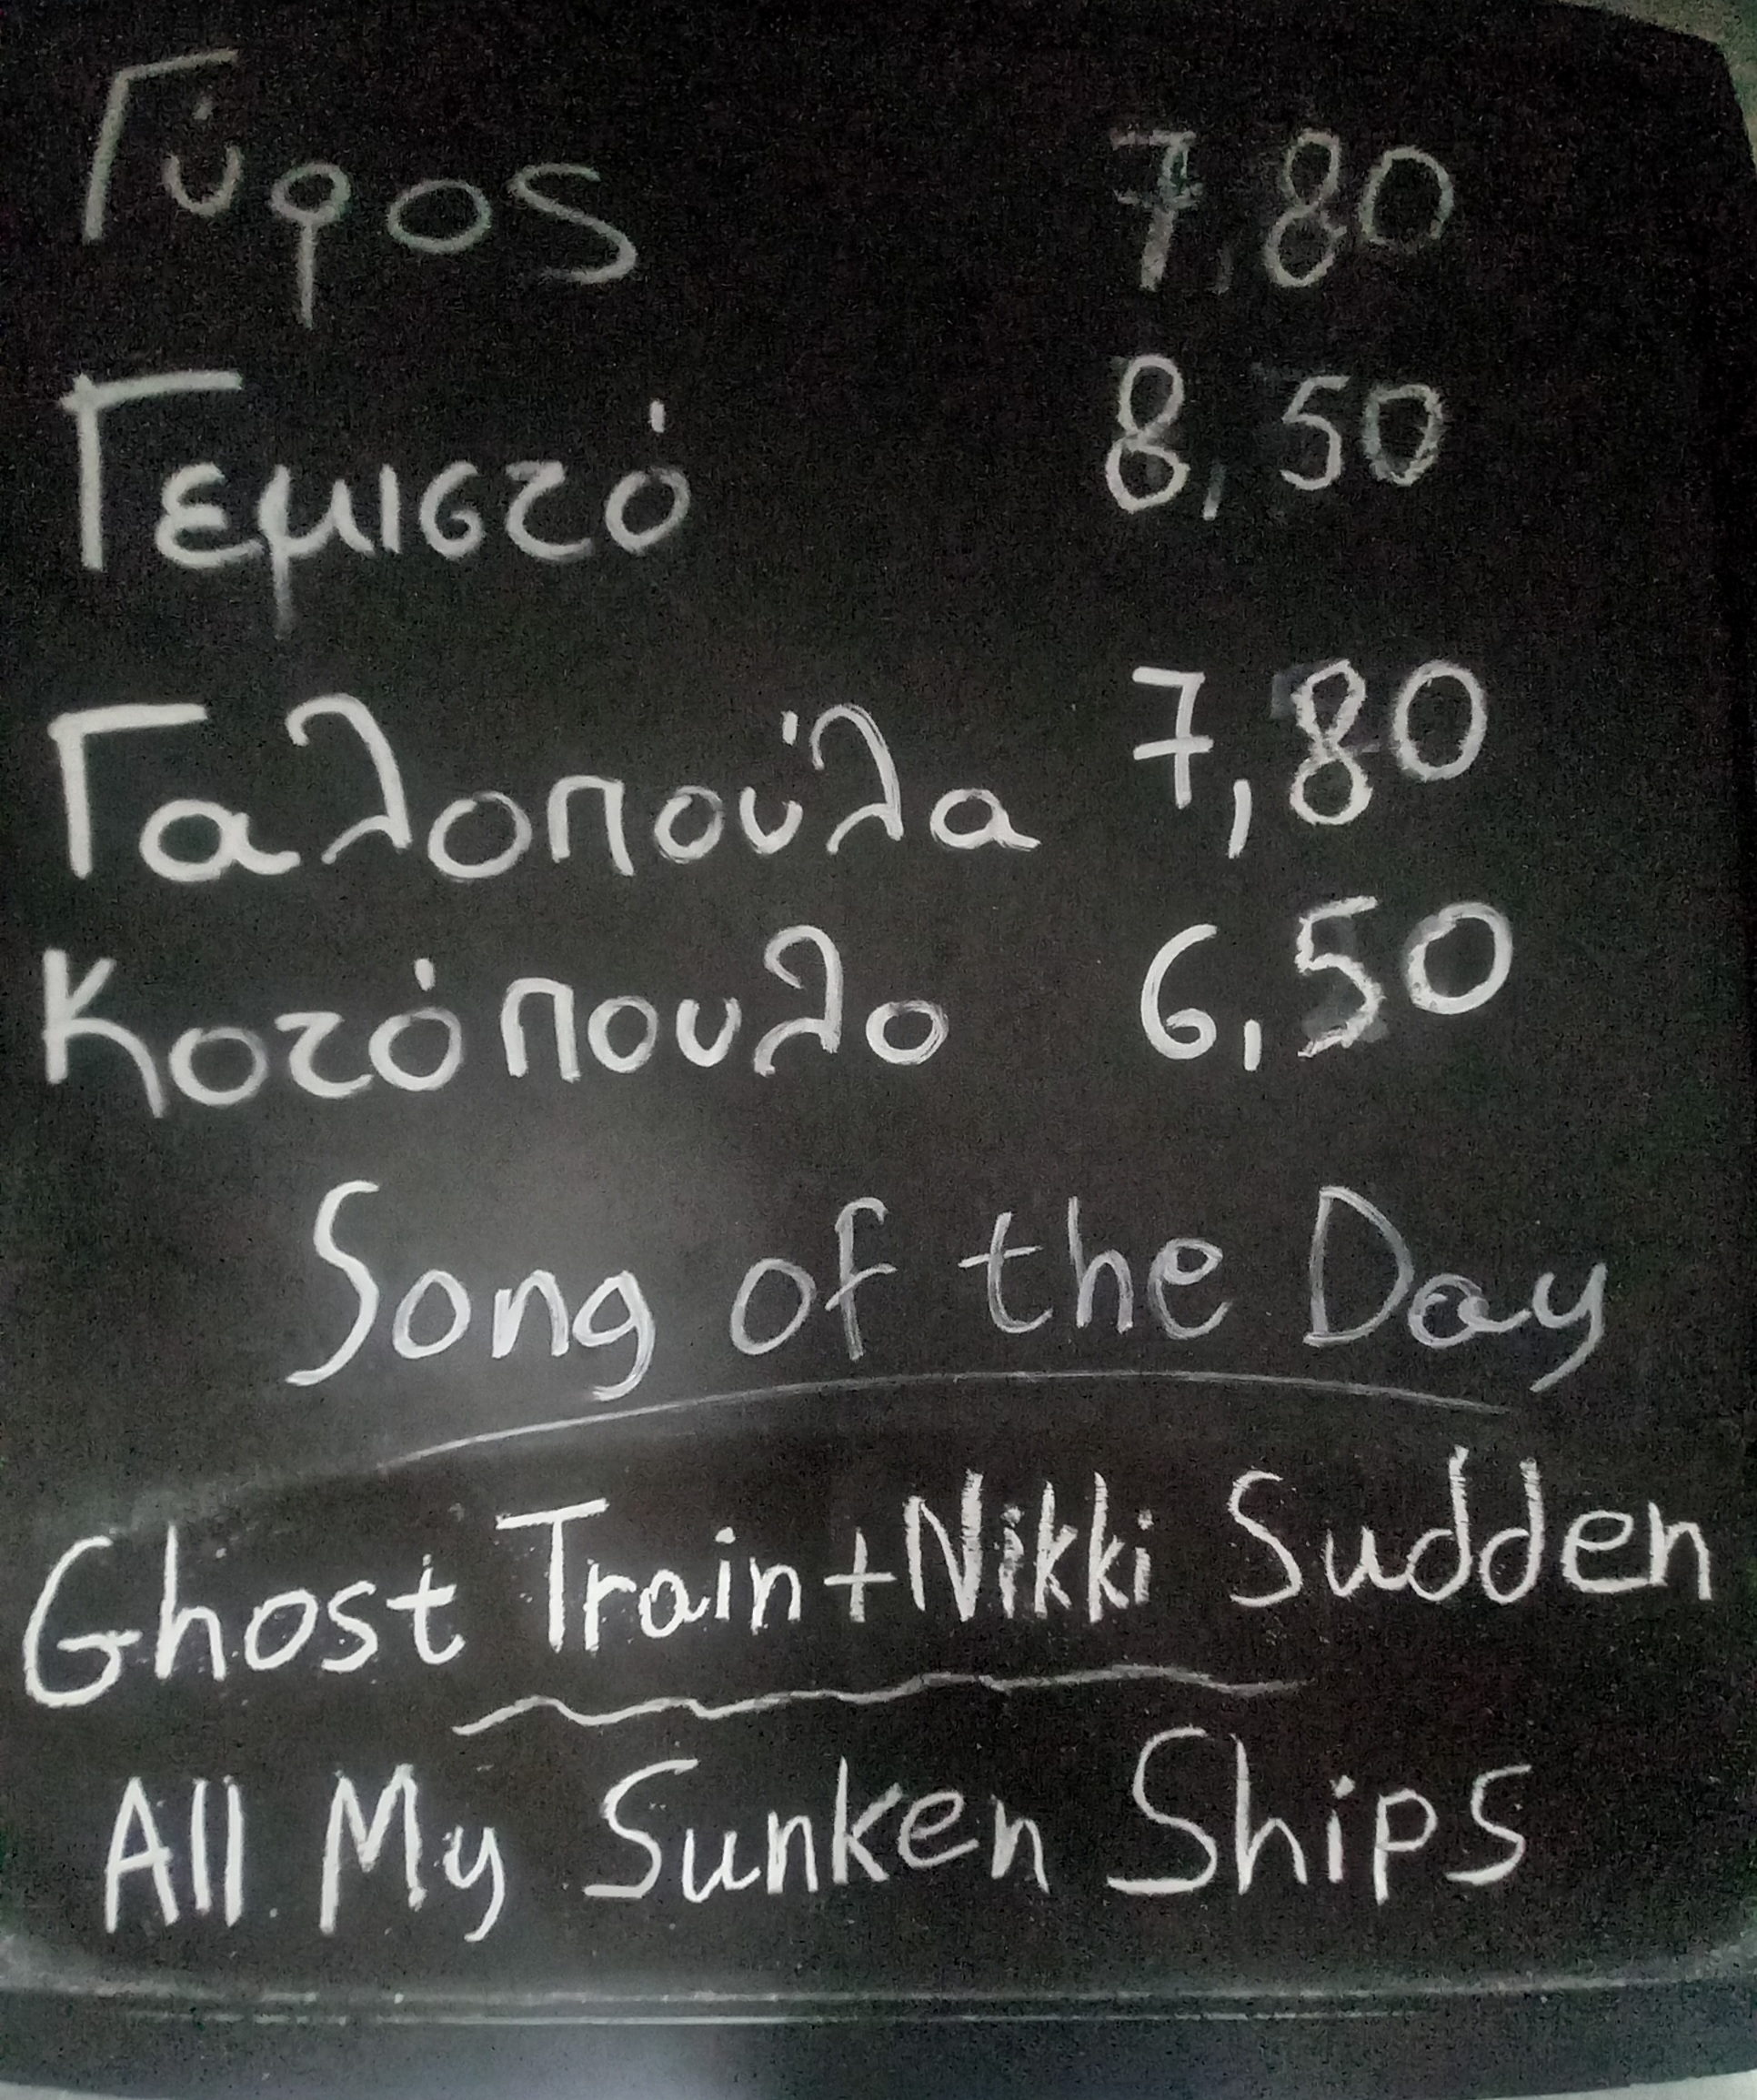 Γύρος 7,80
Γεμιστό 8,50
Γαλοπούλα 7,80
Κοτόπουλο 6,50
Song of the Day
Ghost Train+Nikki Sudden
All My Sunken Ships